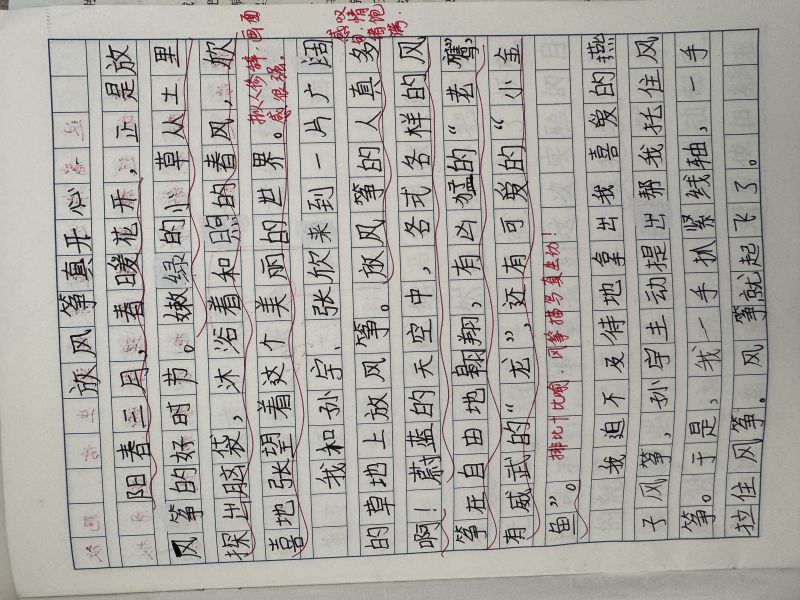 放风筝真开心
阳春三月，春暖花开，正是放
风筝的好时节。嫩绿的小草从土里
探出脑袋，沐浴着和煦的春风，欣
喜地张望着这个美丽的世界。
拟人修辞，画面
感很强。
我和孙宇、张欣来到一片广阔
的草地上放风筝。放风筝的人真多
啊！蔚蓝的天空中，各式各样的风
感叹
句，情
绪饱
满。
筝在自由地翱翔，有凶猛的“老鹰”，
有威武的“龙”，还有可爱的“小金
鱼”。
排比+比喻，风筝描写真生动！
我迫不及待地拿出我喜爱的燕
子风筝，孙宇主动提出帮我托住风
筝。于是，我一手抓紧线轴，一手
拉住风筝。风筝就起飞了。